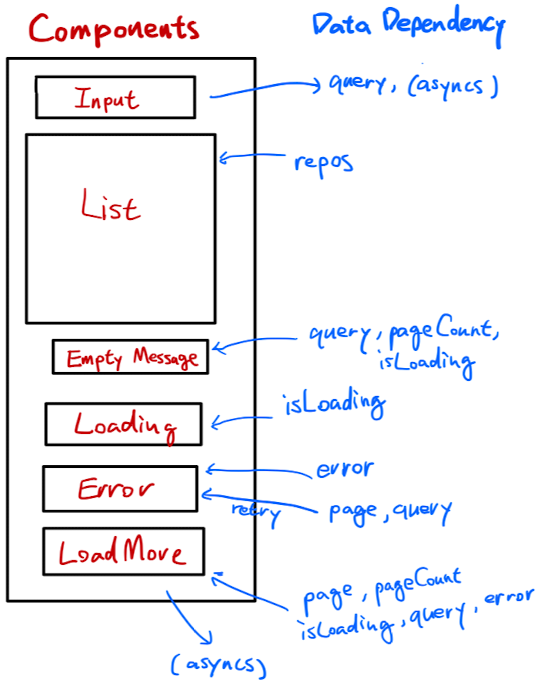 Components
Data Dependency
Input
query, (asyncs)
List
repos
Empty Message
query, pageCount,
isLoading
Loading
isLoading
Error
error
retry
page, query
LoadMore
page, pageCount
isLoading, query, error
(asyncs)